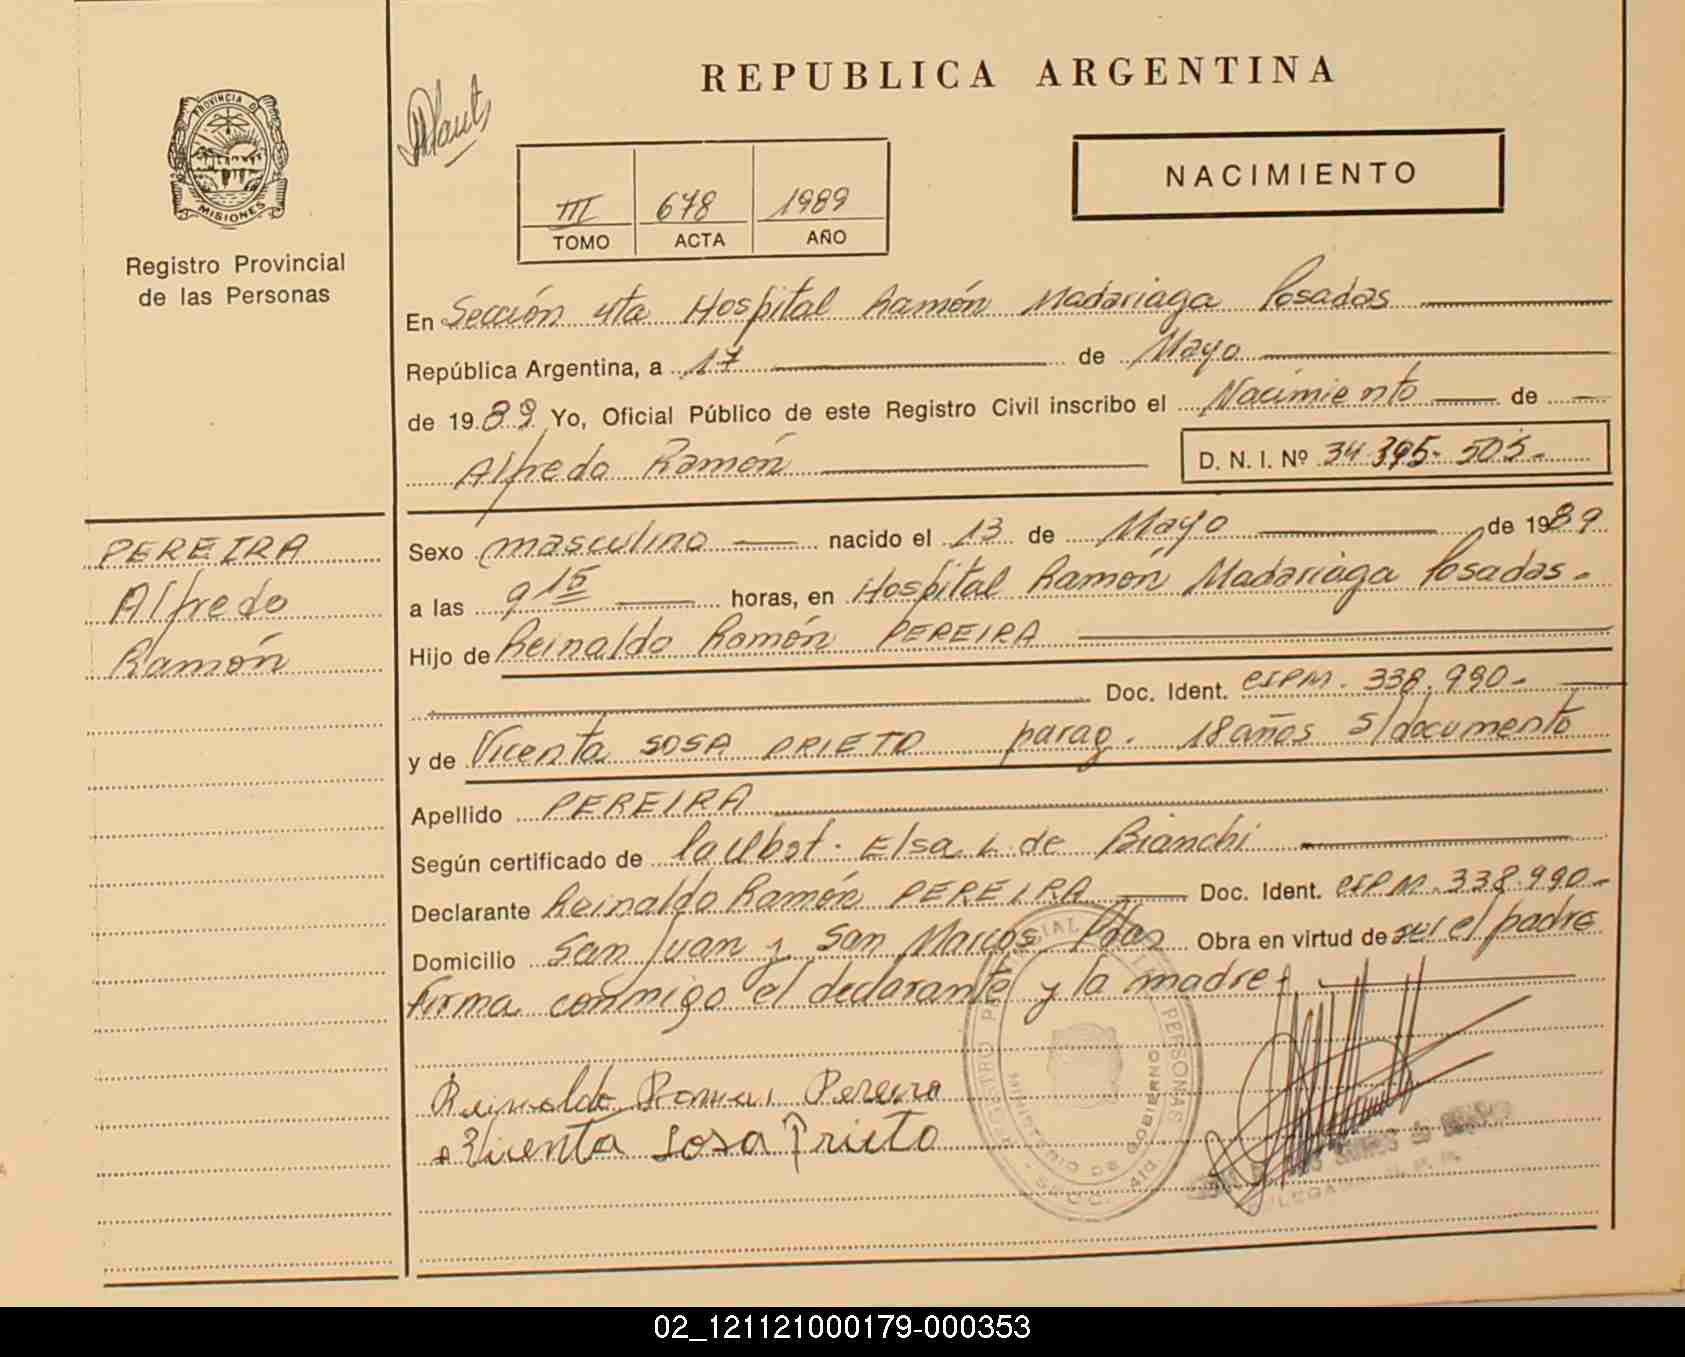 REPUBLICA ARGENTINA
NACIMIENTO
PROVINCIA DE
MISIONES
Registro Provincial
de las Personas
III 678 1989
TOMO ACTA AÑO
En Sección 4ta Hospital Ramón Madariaga Posadas
República Argentina, a 17 de Mayo
de 1989 Yo, Oficial Público de este Registro Civil inscribo el Nacimiento de
Alfredo Ramón
D. N. I. Nº 34.395.505.-
PEREIRA
Alfredo
Ramón
Sexo masculino nacido el 13 de Mayo de 1989
a las 9 15 horas, en Hospital Ramón Madariaga Posadas.
Hijo de Reinaldo Ramón PEREIRA
Doc. Ident. CIPM. 338.990-
y de Vicenta SOSA PRIETO parag. 18 años s/documento
Apellido PEREIRA
Según certificado de la Obst. Elsa L. de Bianchi
Declarante Reinaldo Ramón PEREIRA Doc. Ident. CIPM. 338.990-
Domicilio San Juan y San Marcos Pdas Obra en virtud de ser el padre
firma conmigo el declarante y la madre
Reinaldo Ramon Pereira
Vicenta Sosa Prieto
PERSONAS
GOBIERNO
02_121121000179-000353